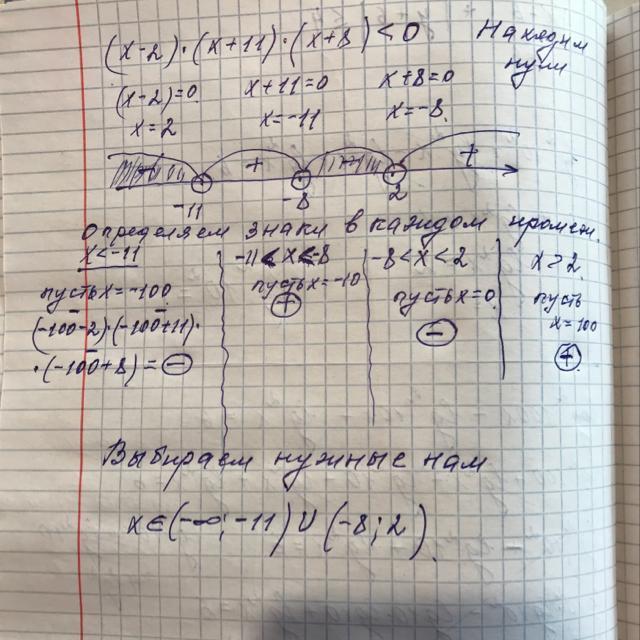 (x-2)·(x+11)·(x+8)<0 Находим нули
(x-2)=0 x+11=0 x+8=0
x=2 x=-11 x=-8
- + - +
-11 -8 2
Определяем знаки в каждом промеж.
x<-11 -11<x<-8 -8<x<2 x>2
пусть x=-100 пусть x=-10 пусть x=0 пусть x=100
(-100-2)·(-100+11)· + - +
·(-100+8)= -
Выбираем нужные нам
x∈(-∞;-11)∪(-8;2)